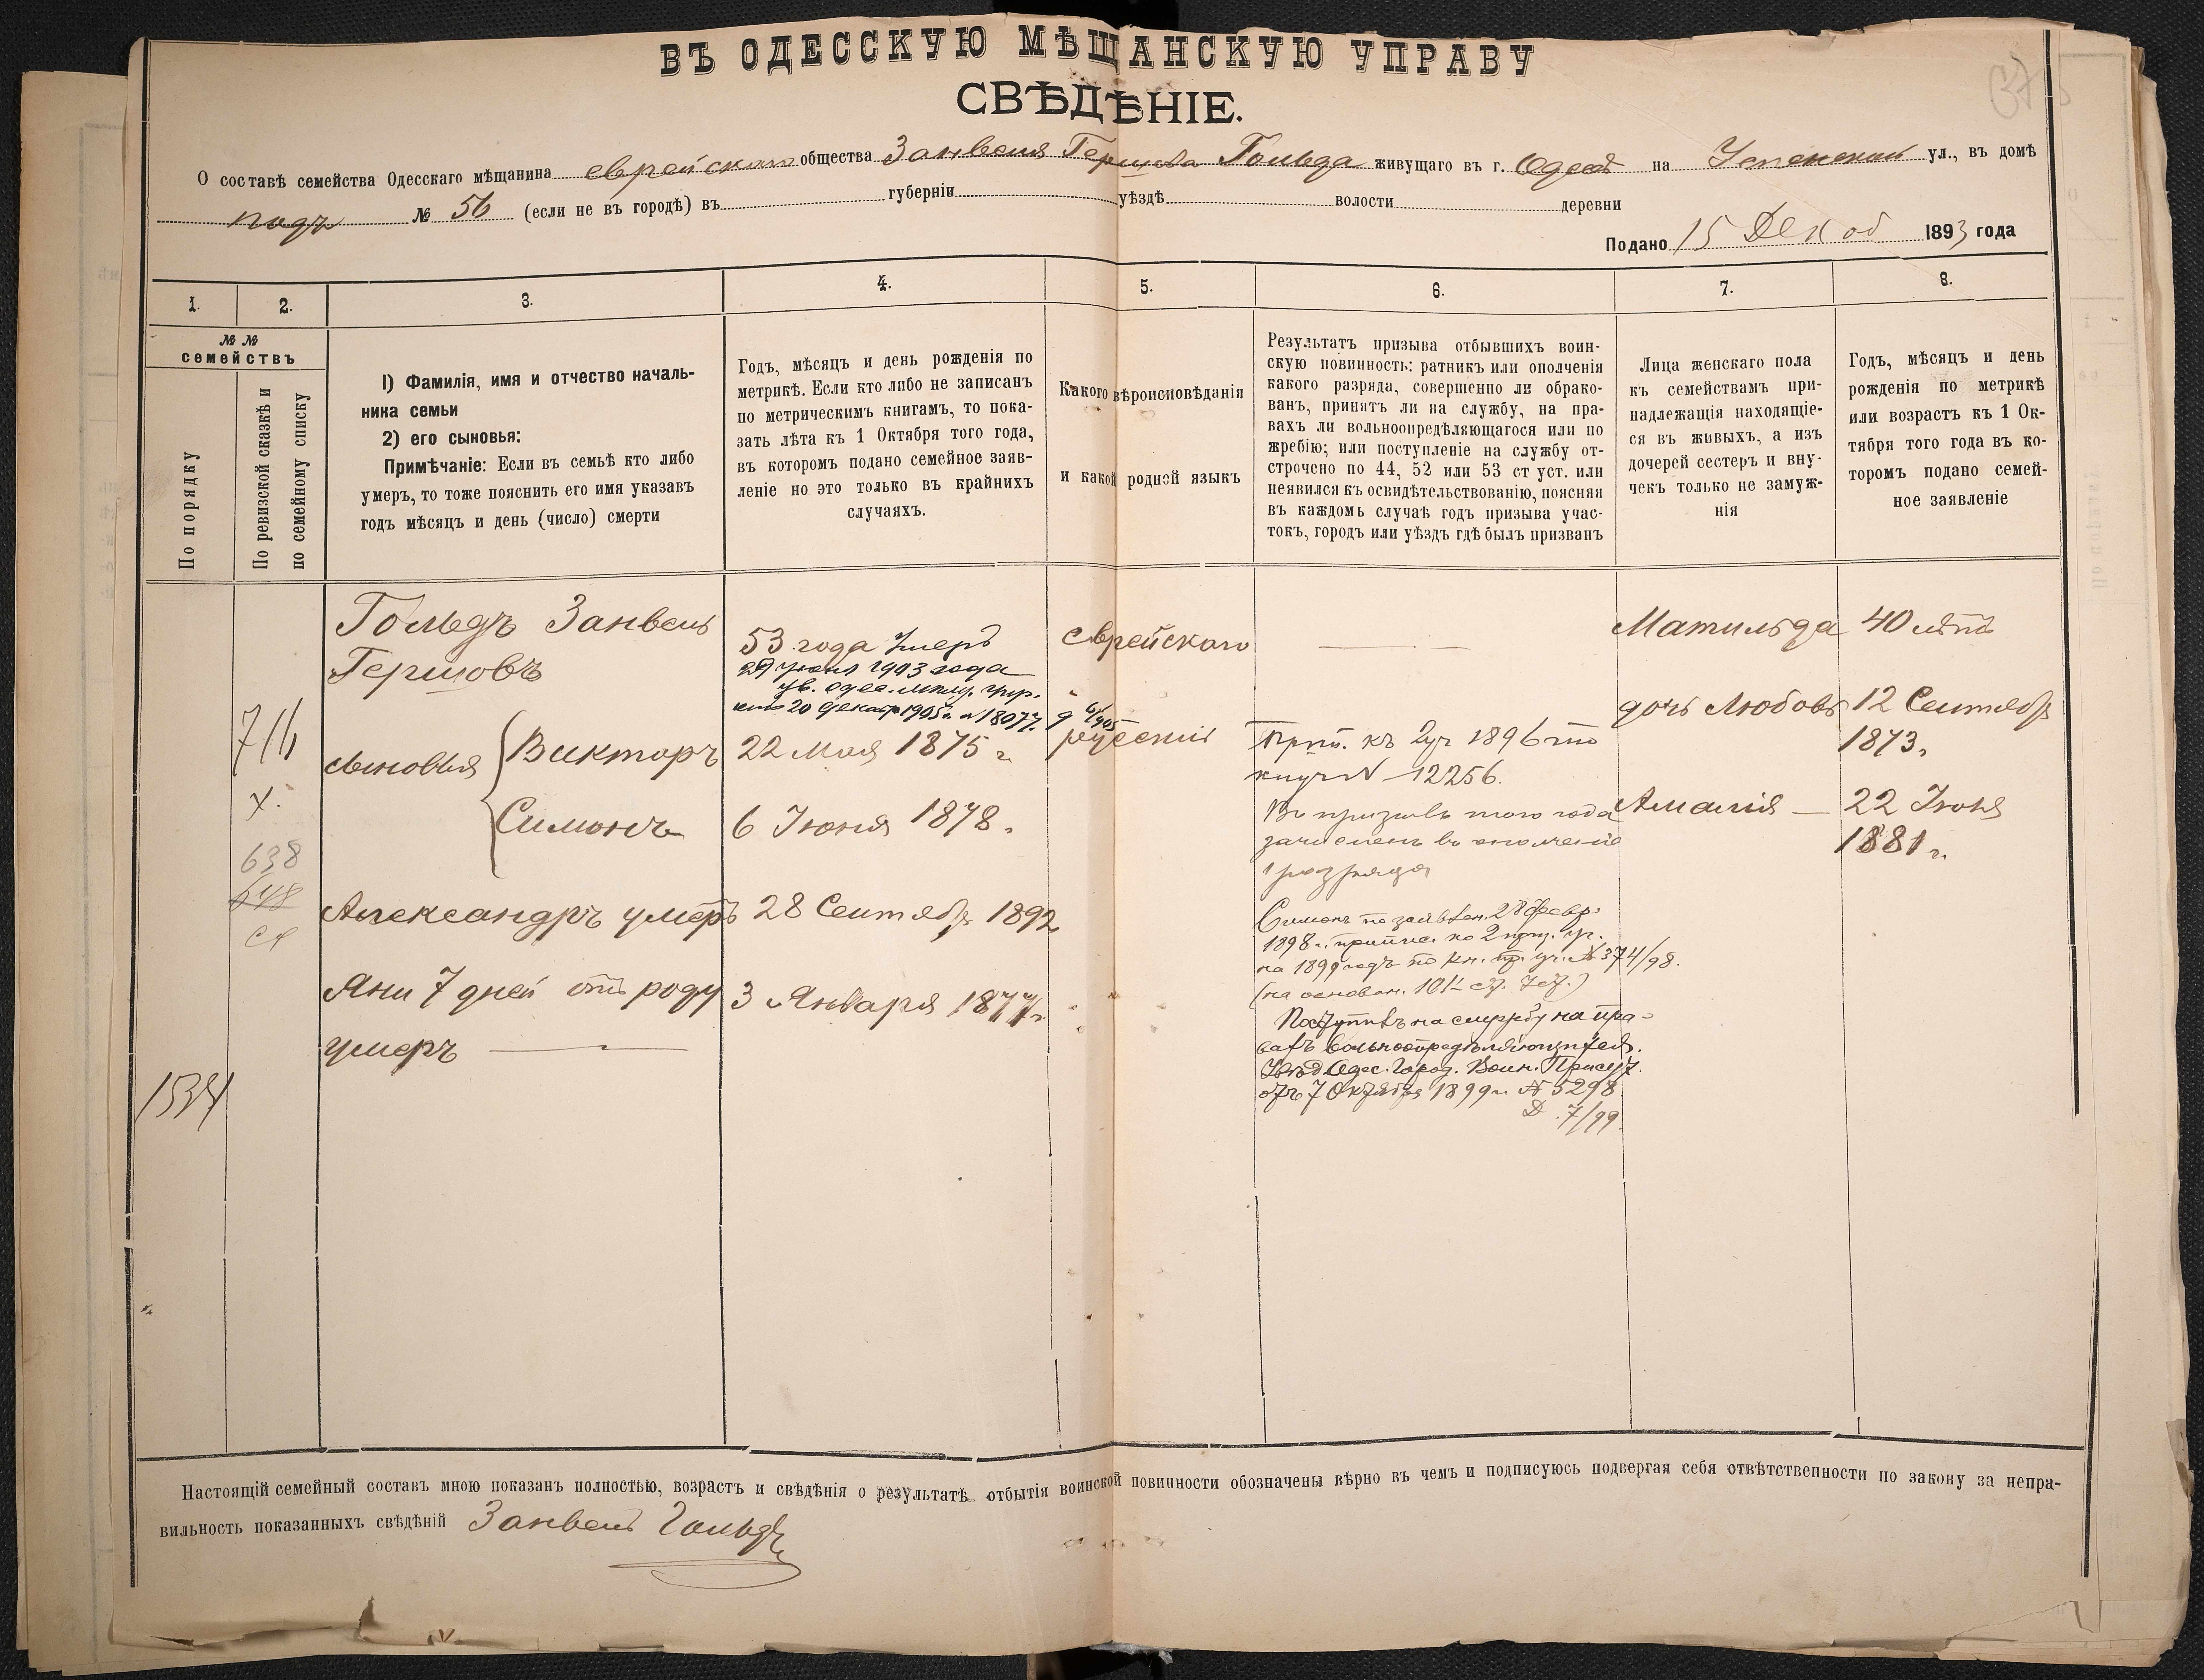 ВЪ ОДЕССКУЮ МѢЩАНСКУЮ УПРАВУ
СВѢДѢНІЕ.
О составѣ семейства Одесскаго мѣщанина еврейскаго общества Занвеля Гершова Гольда живущаго въ г. Одессѣ на Успенской ул., въ домѣ
подъ № 56 (если не въ городѣ) въ губерніи уѣздѣ волости деревни
Подано 15 Декаб 1893 года
1.
2.
3.
4.
5.
6.
7.
8.
№ №
семействъ
По порядку
По ревизской сказкѣ и
по семейному списку
1) Фамилія, имя и отчество началь-
ника семьи
2) его сыновья:
Примѣчаніе: Если въ семьѣ кто либо
умеръ, то тоже пояснить его имя указавъ
годъ мѣсяцъ и день (число) смерти
Годъ, мѣсяцъ и день рожденія по
метрикѣ. Если кто либо не записанъ
по метрическимъ книгамъ, то пока-
зать лѣта къ 1 Октября того года,
въ которомъ подано семейное заяв-
леніе но это только въ крайнихъ
случаяхъ.
Какого вѣроисповѣданія
и какой родной языкъ
Результатъ призыва отбывшихъ воин-
скую повинность: ратникъ или ополченія
какого разряда, совершенно ли обрако-
ванъ, принятъ ли на службу, на пра-
вахъ ли вольноопредѣляющагося или по
жребію; или поступленіе на службу от-
строчено по 44, 52 или 53 ст уст. или
неявился къ освидѣтельствованію, поясняя
въ каждомъ случаѣ годъ призыва учас-
токъ, городъ или уѣздъ гдѣ былъ призванъ
Лица женскаго пола
къ семействамъ при-
надлежащія находящіе-
ся въ живыхъ, а изъ
дочерей сестеръ и вну-
чекъ только не замуж-
нія
Годъ, мѣсяцъ и день
рожденія по метрикѣ
или возрастъ къ 1 Ок-
тября того года въ ко-
торомъ подано семей-
ное заявленіе
Гольдъ Занвель
Гершовъ
716
х.
638
648
сыновья
Викторъ
Симонъ
Александръ умеръ
Яни 7 дней отъ роду
умеръ
1534
53 года Умеръ
29 Іюня 1903 года
ув. одес. мѣщ. упр.
20 Декабр 1905 г. № 18077.
22 Мая 1875 г.
6 Іюня 1878.
28 Сентябр 1892
3 Января 1877 г.
еврейскаго
русскій
Прип. къ 2 уч 1896
№ 12256.
Въ призывъ того года
зачисленъ въ ополченіе
1 розряда
Симонъ по заявлен. 28 февр.
1898 г. припис. ко 2 приз. уч.
на 1899 годъ по кн. пр. уч. № 374/98.
(на основан.
Поступилъ на службу на пра-
вахъ вольноопредѣляющагося.
Увѣд Одес. Город. Воин. Присут.
отъ 7 Октября 1899 г. № 5298
Д. 7/99.
Матильда
дочь Любовь
Амалія
40 лѣтъ
12 Сентябр
1873.
22 Іюня
1881 г.
Настоящій семейный составъ мною показанъ полностью, возрастъ и свѣдѣнія о результатѣ отбытія воинской повинности обозначены вѣрно въ чемъ и подписуюсь подвергая себя отвѣтственности по закону за непра-
вильность показанныхъ свѣдѣній Занвель Гольдъ